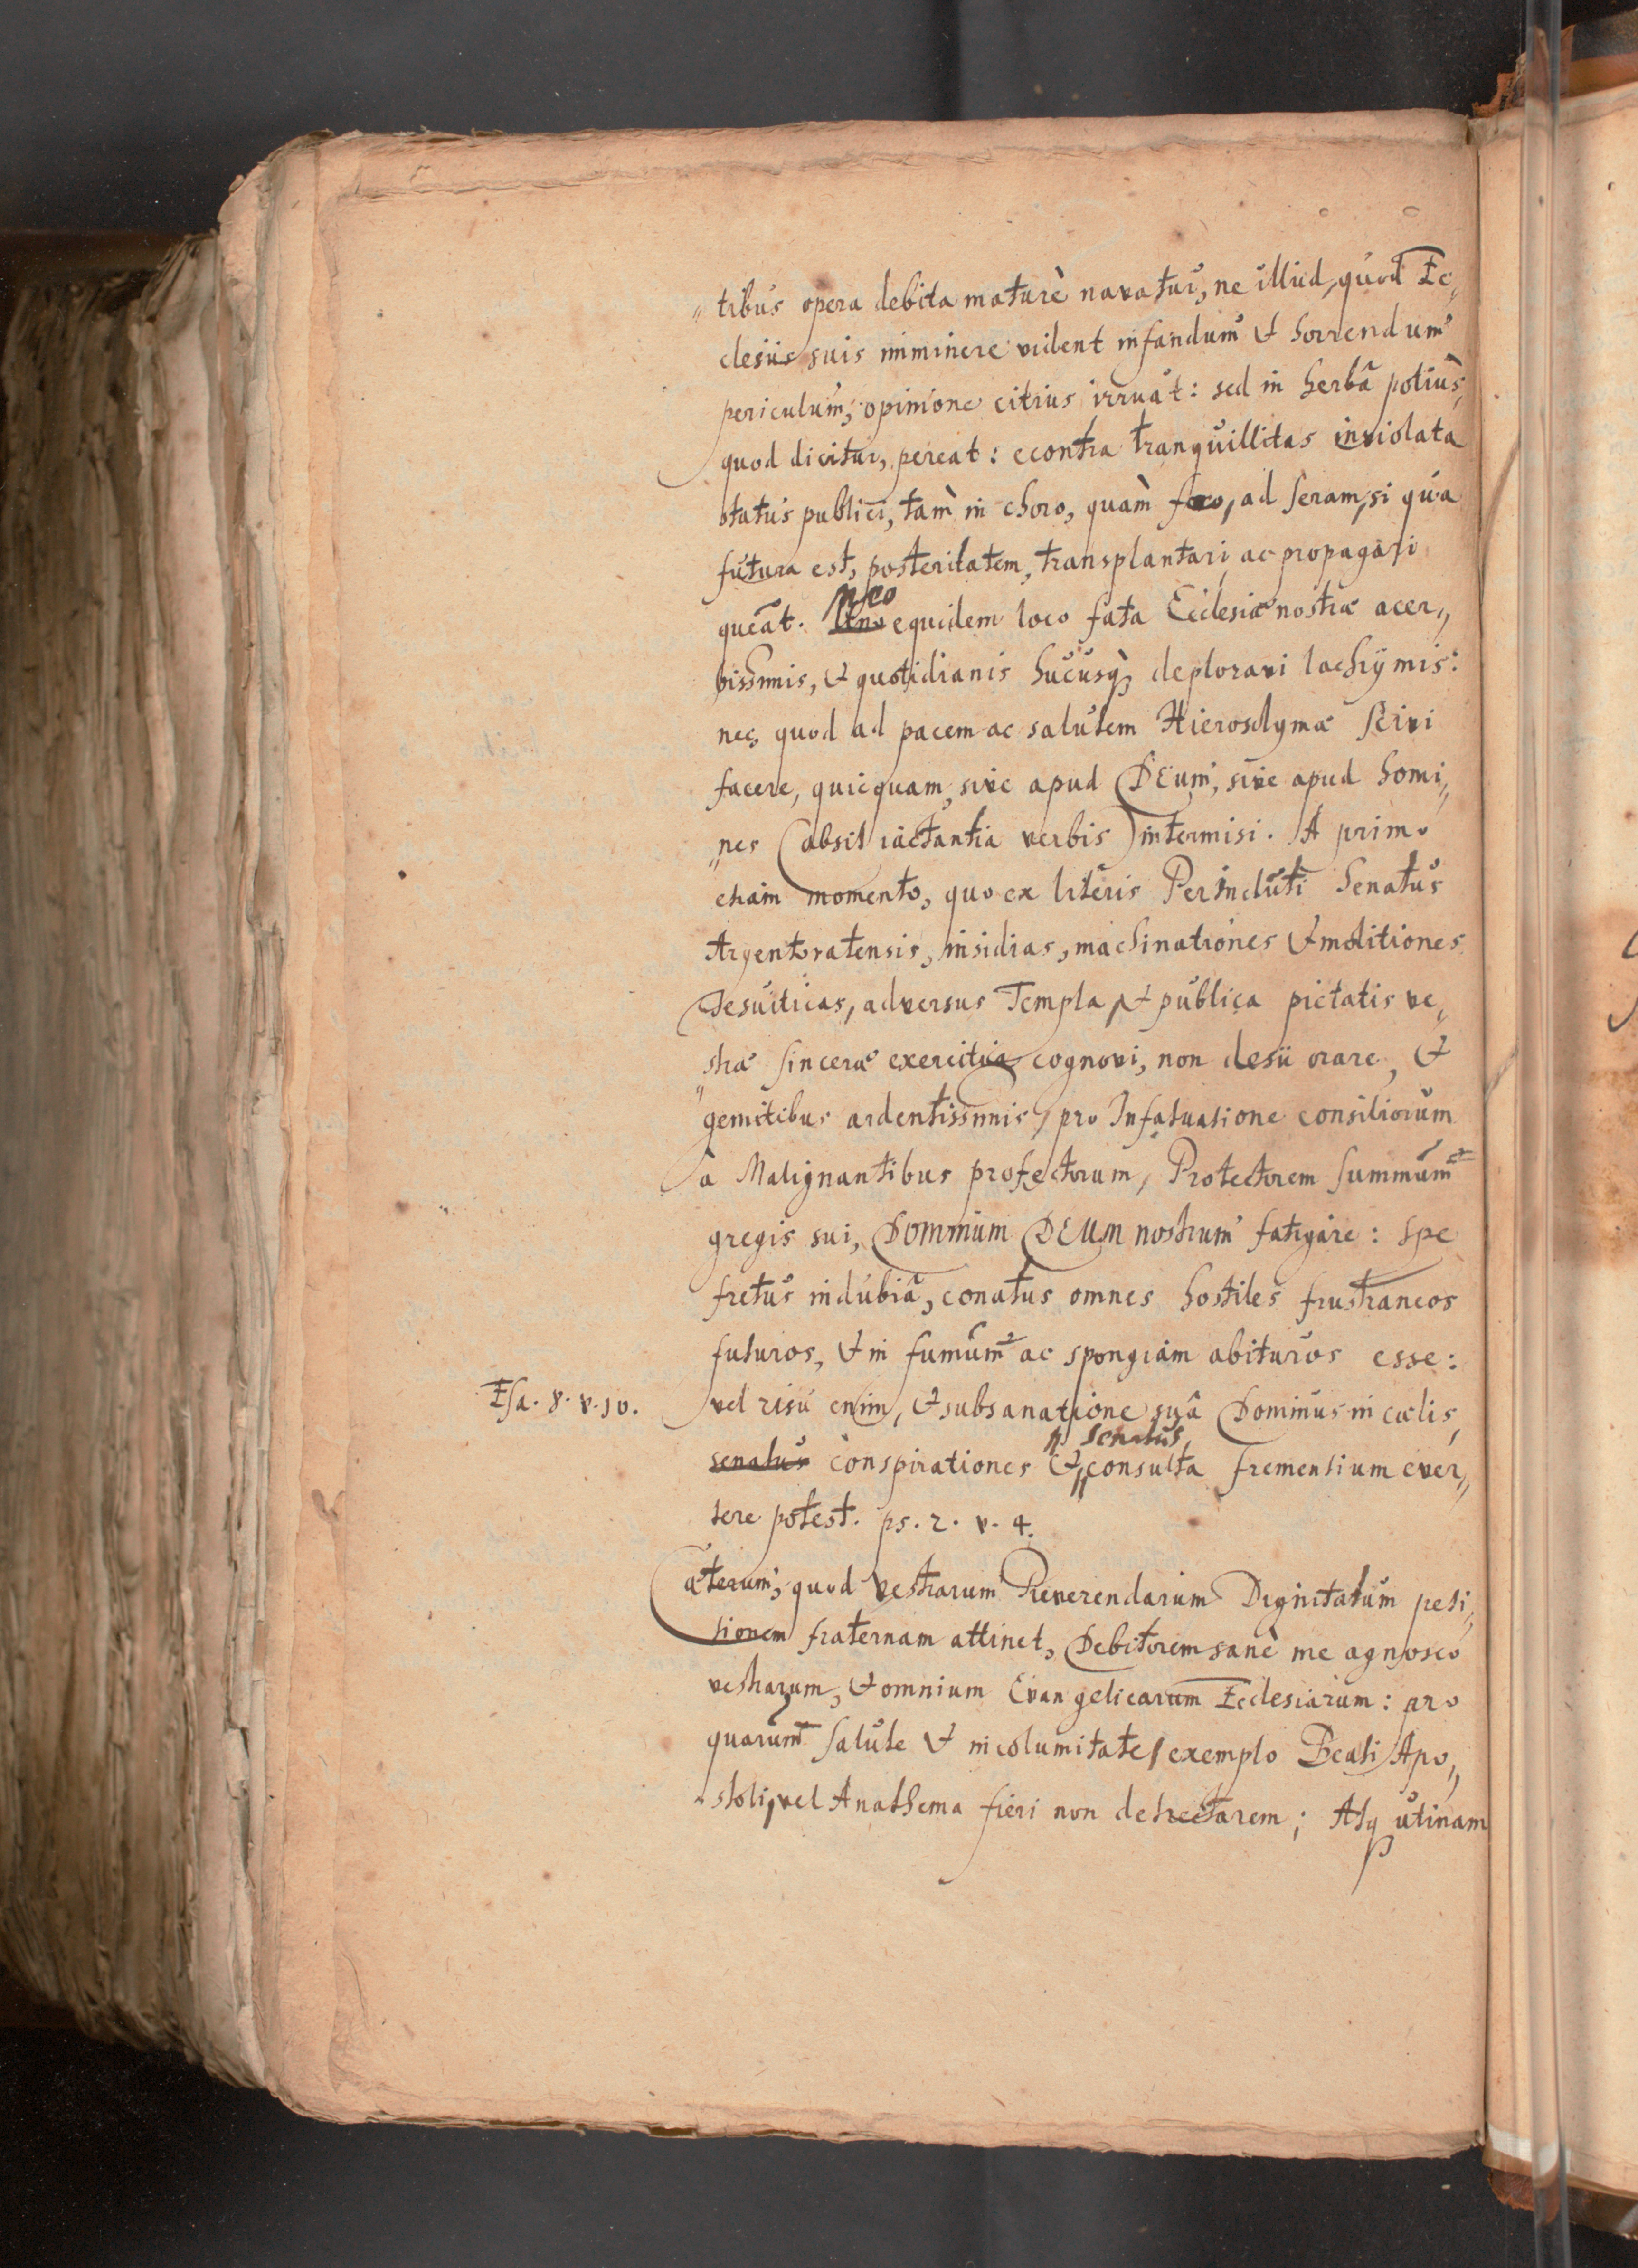 tribus opera debita maturè navatur, ne illud, quod Ec„
clesiis suis imminere vident infandum & horrendum
periculum, opinione citius irruat: sed in herbâ potiùs,
quod dicitur, pereat: econtra tranquillitas inviolata
status publici, tàm in choro, quàm foro, ad seram, si qua
futura est, posteritatem, transplantari ac propagari
queat. Meo equidem loco fata Ecclesiæ nostræ acer„
bissimis, & quotidianis hucusq; deploravi lachrÿmis:
nec, quod ad pacem ac salutem Hierosolymæ scivi
facere, quicquam, sive apud DEum, sive apud homi„
„nes (absit iactantia verbis) intermisi. A primo
etiam momento, quo ex literis Perincluti Senatus
Argentoratensis, insidias, machinationes & molitiones
Jesuiticas, adversus Templa, & publica pietatis ve„
„stræ sinceræ exercitia cognovi, non desii orare, &
gemitibus ardentissimis, pro Infatuatione consiliorum
à Malignantibus profectorum, Protectorem summum
gregis sui, DOMINUM DEUM nostrum fatigare: spe
fretus indubiâ, conatus omnes hostiles frustraneos
futuros, & in fumum ac spongiam abituros esse:
Esa. 8. v. 10.
vel risu enim, & subsanatione suâ Dominus in cœlis,
senatus
senatus conspirationes & consulta frementium ever„
tere potest. ps. 2. v. 4.
Cæterum, quod Vestrarum Reverendarum Dignitatum peti„
tionem fraternam attinet, Debitorem sanè me agnosco
vestrarum, & omnium Evangelicarum Ecclesiarum: pro
quarum salute & incolumitate, exemplo Beati Apo„
stoli, vel Anathema fieri non detrectarem; Atq; utinam